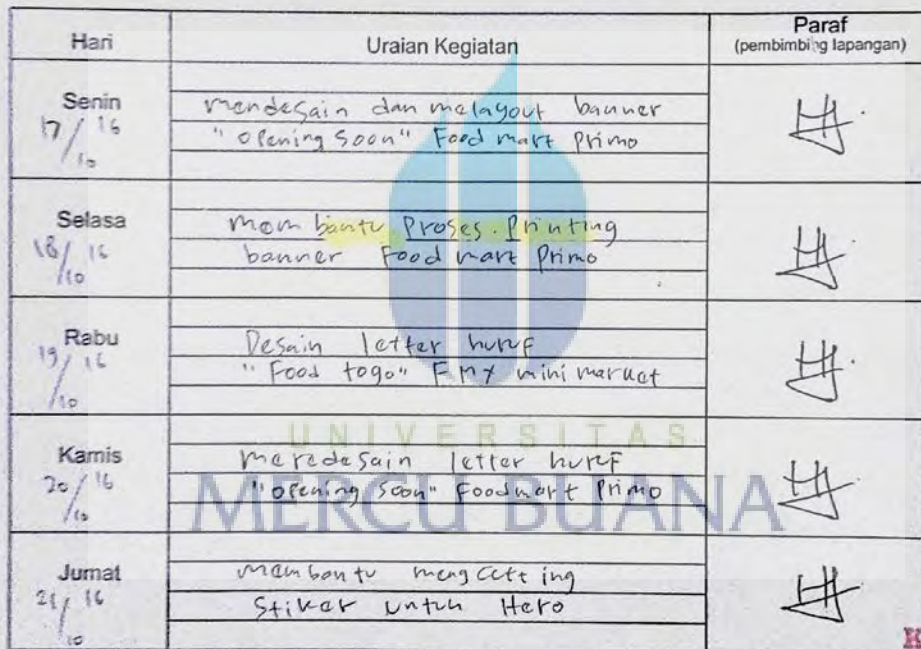 Hari Uraian Kegiatan Paraf
(pembimbing lapangan)
Senin
17/10 16
mendesain dan melayout banner
"opening soon" Food mart Primo
Selasa
18/10 16
mem bantu Proses. Printing
banner Food mart Primo
Rabu
19/10 16
Desain letter huruf
"Food togo" FMX mini market
Kamis
20/10 16
meredesain letter huruf
"opening soon" Foodmart Primo
Jumat
21/10 16
membantu mengCutting
Stiker untuk Hero
UNIVERSITAS
MERCU BUANA